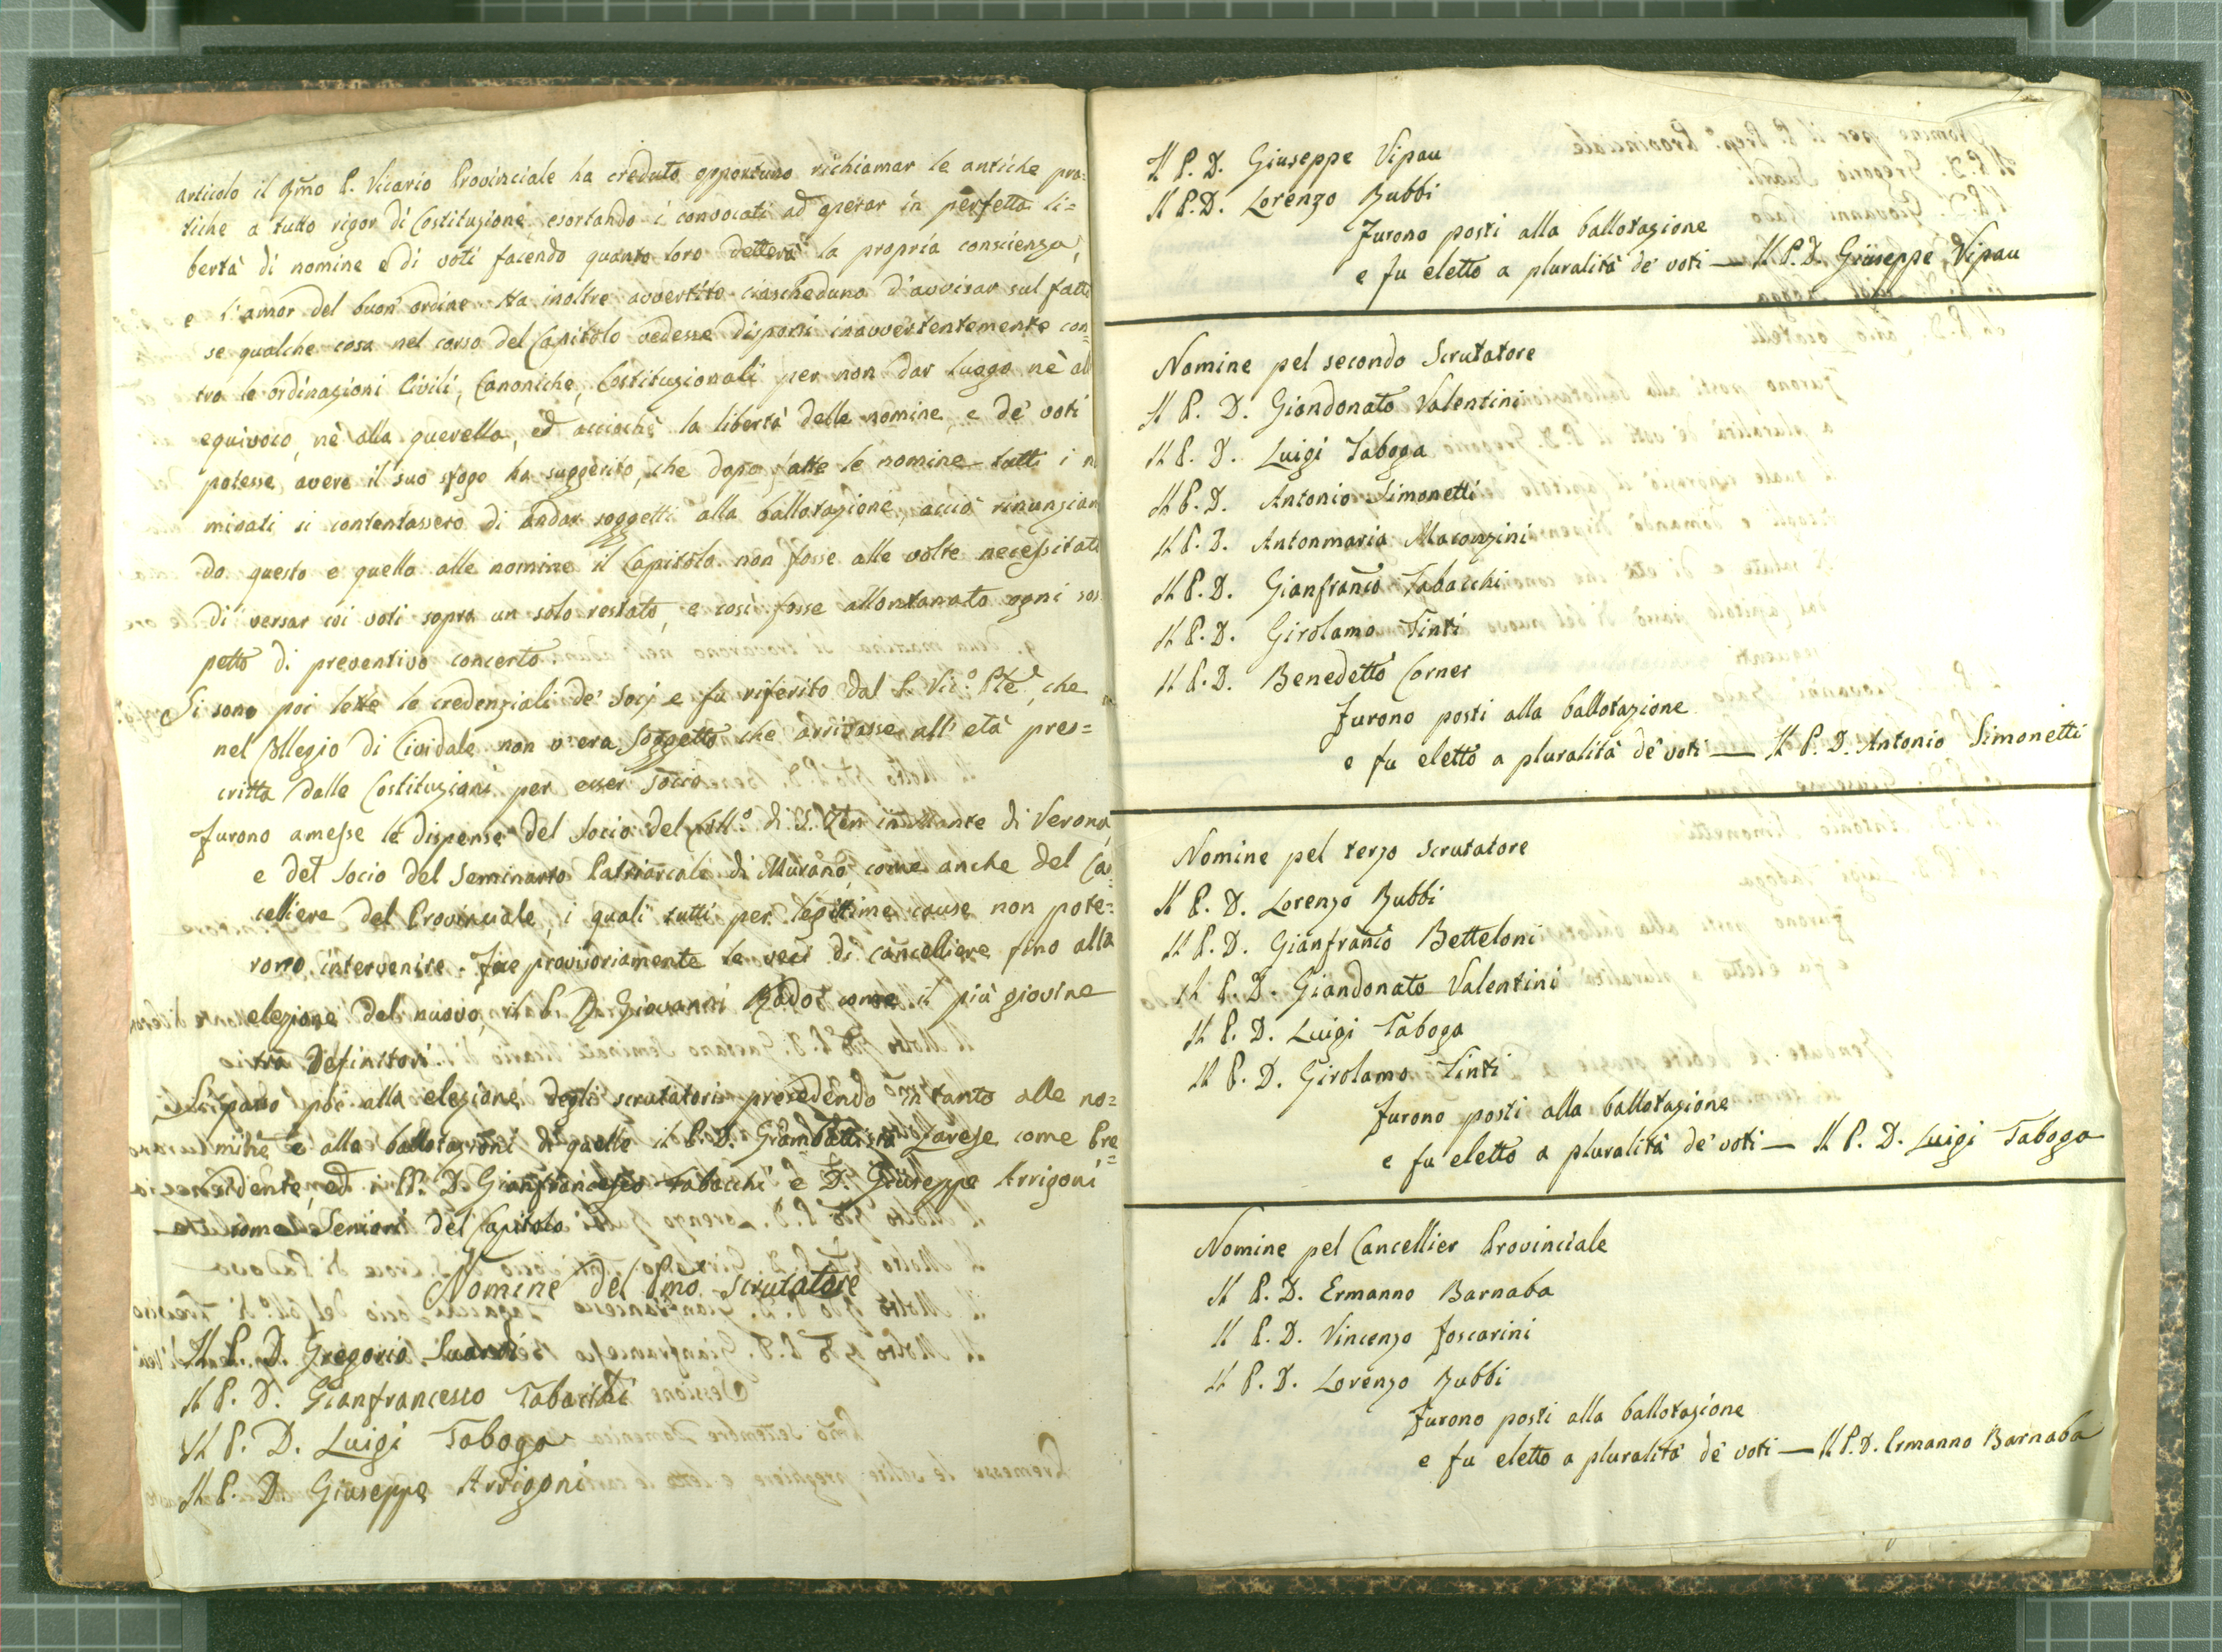 articolo il Rmo P. Vicario Provinciale ha creduto opportuno richiamar le antiche pra=
tiche a tutto rigor di Costituzione esortando i convocati ad operar in perfetta li=
bertà di nomine e di voti facendo quanto loro detterà la propria conscienza,
e l'amor del buon ordine. Ha inoltre avvertito ciascheduno d'avvisar sul fatto
se qualche cosa nel corso del Capitolo vedesse disporsi inavvertentemente con=
tro le ordinazioni Civili, Canoniche, Costituzionali per non dar luogo nè all
equivoco, nè alla querella, ed acciochè la libertà delle nomine e de' voti
potesse avere il suo sfogo ha suggerito, che dopo fatte le nomine tutti i n
minati si contentassero di andar soggetti alla ballotazione, acciò rinunzian
do questo e quello alle nomine il Capitolo non fosse alle volte necessitato
di versar coi voti sopra un solo restato, e così fosse allontanato ogni sos
petto di preventivo concerto.
Si sono poi lette le credenziali de' Socj e fu riferito dal P. Vic.º Ple, che
nel Collegio di Cividale non v'era Soggetto che arrivasse all' età pres=
critta dalle Costituzioni per esser Socio
Furono amesse le dispense del Socio del Coll.º di S. Zen in Monte di Verona,
e del Socio del Seminario Patriarcale di Murano, come anche del Can=
celliere del Provinciale, i quali tutti per legittime cause non pote=
rono intervenire. Fece provisoriamente le veci di cancelliere fino alla
elezione del nuovo, il P. D. Giovanni Rado come il più giovine
tra Definitori.
Si passò poi alla elezione degli scrutatori precedendo intanto alle no=
mine e alla ballotazioni di quelle il P. D. Giambattista Varese come Pre=
sidente, ed i PP. D. Gianfrancesco Tabacchi e D. Giuseppe Arrigoni
come Seniori del Capitolo
Nomine del Pmo scrutatore
Il P. D. Gregorio Suardi
Il P. D. Gianfrancesco Tabacchi
Il P. D. Luigi Taboga
Il P. D. Giuseppe Arrigoni
Il P. D. Giuseppe Vipau
Il P. D. Lorenzo Bubbi
Furono posti alla ballotazione
e fu eletto a pluralità de' voti — Il P. D. Giuseppe Vipau
Nomine pel secondo Scrutatore
Il P. D. Giandonato Valentini
Il P. D. Luigi Taboga
Il P. D. Antonio Simonetti
Il P. D. Antonmaria Maconzini
Il P. D. Gianfranco Tabacchi
Il P. D. Girolamo Tinti
Il P. D. Benedetto Corner
Furono posti alla ballotazione
e fu eletto a pluralità de' voti — Il P. D. Antonio Simonetti
Nomine pel terzo scrutatore
Il P. D. Lorenzo Bubbi
Il P. D. Gianfranco Betteloni
Il P. D. Giandonato Valentini
Il P. D. Luigi Taboga
Il P. D. Girolamo Tinti
Furono posti alla ballotazione
e fu eletto a pluralità de' voti — Il P. D. Luigi Taboga
Nomine pel Cancellier Provinciale
Il P. D. Ermanno Barnaba
Il P. D. Vincenzo Foscarini
Il P. D. Lorenzo Bubbi
Furono posti alla ballotazione
e fu eletto a pluralità de' voti — Il P. D. Ermanno Barnaba